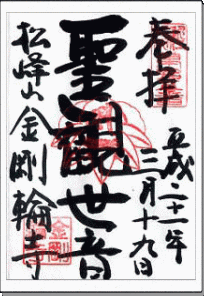 奉拝
平成二十一年
三月十九日
聖観世音
松峰山金剛輪寺